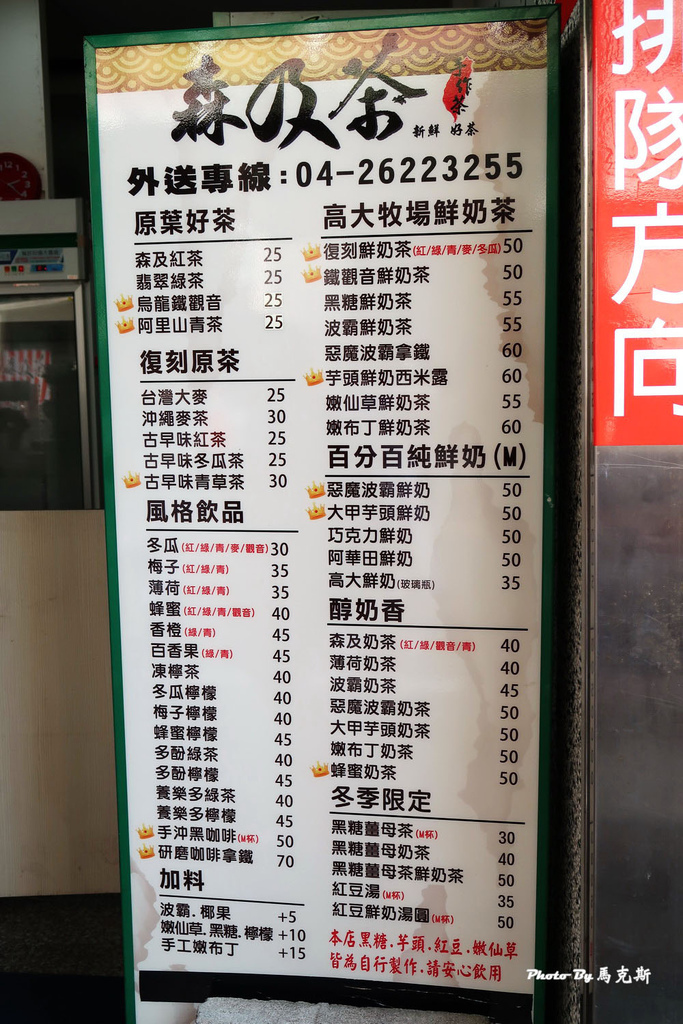 森及茶
手作茶
新鮮 好茶
外送專線:04-26223255
原葉好茶
森及紅茶 25
翡翠綠茶 25
烏龍鐵觀音 25
阿里山青茶 25
復刻原茶
台灣大麥 25
沖繩麥茶 30
古早味紅茶 25
古早味冬瓜茶 25
古早味青草茶 30
風格飲品
冬瓜(紅/綠/青/麥/觀音) 30
梅子(紅/綠/青) 35
薄荷(紅/綠/青) 35
蜂蜜(紅/綠/青/觀音) 40
香橙(綠/青) 45
百香果(綠/青) 45
凍檸茶 40
冬瓜檸檬 40
梅子檸檬 40
蜂蜜檸檬 45
多酚綠茶 40
多酚檸檬 45
養樂多綠茶 40
養樂多檸檬 45
手沖黑咖啡(M杯) 50
研磨咖啡拿鐵 70
加料
波霸.椰果 +5
嫩仙草.黑糖.檸檬 +10
手工嫩布丁 +15
高大牧場鮮奶茶
復刻鮮奶茶(紅/綠/青/麥/冬瓜) 50
鐵觀音鮮奶茶 50
黑糖鮮奶茶 55
波霸鮮奶茶 55
惡魔波霸拿鐵 60
芋頭鮮奶西米露 60
嫩仙草鮮奶茶 55
嫩布丁鮮奶茶 60
百分百純鮮奶(M)
惡魔波霸鮮奶 50
大甲芋頭鮮奶 50
巧克力鮮奶 50
阿華田鮮奶 50
高大鮮奶(玻璃瓶) 35
醇奶香
森及奶茶(紅/綠/觀音/青) 40
薄荷奶茶 40
波霸奶茶 45
惡魔波霸奶茶 50
大甲芋頭奶茶 50
嫩布丁奶茶 50
蜂蜜奶茶 50
冬季限定
黑糖薑母茶(M杯) 30
黑糖薑母奶茶 40
黑糖薑母茶鮮奶茶 50
紅豆湯(M杯) 35
紅豆鮮奶湯圓(M杯) 50
本店黑糖.芋頭.紅豆.嫩仙草
皆為自行製作.請安心飲用
排隊方向
Photo By 馬克斯